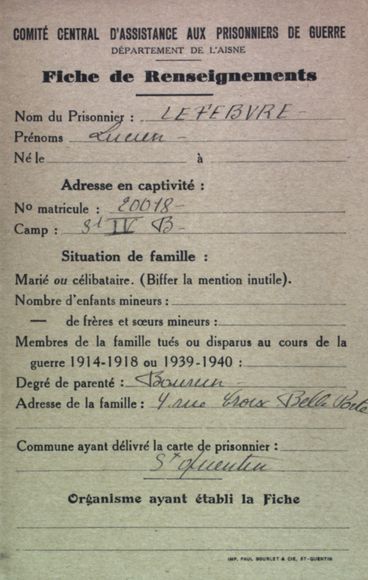 COMITÉ CENTRAL D'ASSISTANCE AUX PRISONNIERS DE GUERRE
DÉPARTEMENT DE L'AISNE
Fiche de Renseignements
Nom du Prisonnier : LEFEBVRE -
Prénoms Lucien -
Né le à
Adresse en captivité :
No matricule : 20018 -
Camp : St IV B -
Situation de famille :
Marié ou célibataire. (Biffer la mention inutile).
Nombre d'enfants mineurs :
— de frères et sœurs mineurs :
Membres de la famille tués ou disparus au cours de la
guerre 1914-1918 ou 1939-1940 :
Degré de parenté :
Adresse de la famille : 4 rue Croix Belle Porte
Commune ayant délivré la carte de prisonnier :
St Quentin
Organisme ayant établi la Fiche
IMP. PAUL BOURLET & CIE, ST-QUENTIN